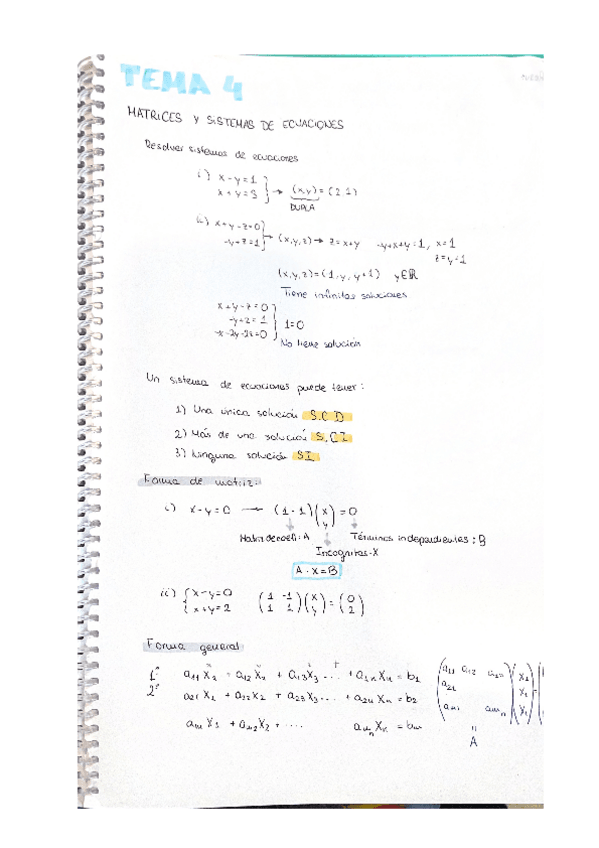 TEMA 4
MATRICES Y SISTEMAS DE ECUACIONES
Resolver sistemas de ecuaciones
i) x-y=1
x+y=3 → (x,y) = (2,1)
DUPLA
ii) x+y-z=0
-y+z=1 → (x,y,z) → z=x+y -y+x+y=1, x=1
z=y+1
(x,y,z)=(1,y,y+1) y∈ℝ
Tiene infinitas soluciones
x+y-z=0
-y+z=1 1=0
-x-2y-2z=0
No tiene solución
Un sistema de ecuaciones puede tener:
1) Una única solución S.C.D
2) Más de una solución S.C.I
3) Ninguna solución S.I.
Forma de matriz:
i) x-y=0 → (1 -1)(x y)=0
Matriz de coefi: A Términos independientes: B
Incógnitas-X
A·X=B
ii) { x-y=0 (1 -1)(x)=(0)
x+y=2 (1 1)(y) (2)
Forma general
1ª a11 X1 + a12 X2 + a13 X3 ... + a1n Xn = b1
2ª a21 X1 + a22 X2 + a23 X3 ... + a2n Xn = b2
+ am2 X2 + ....
A